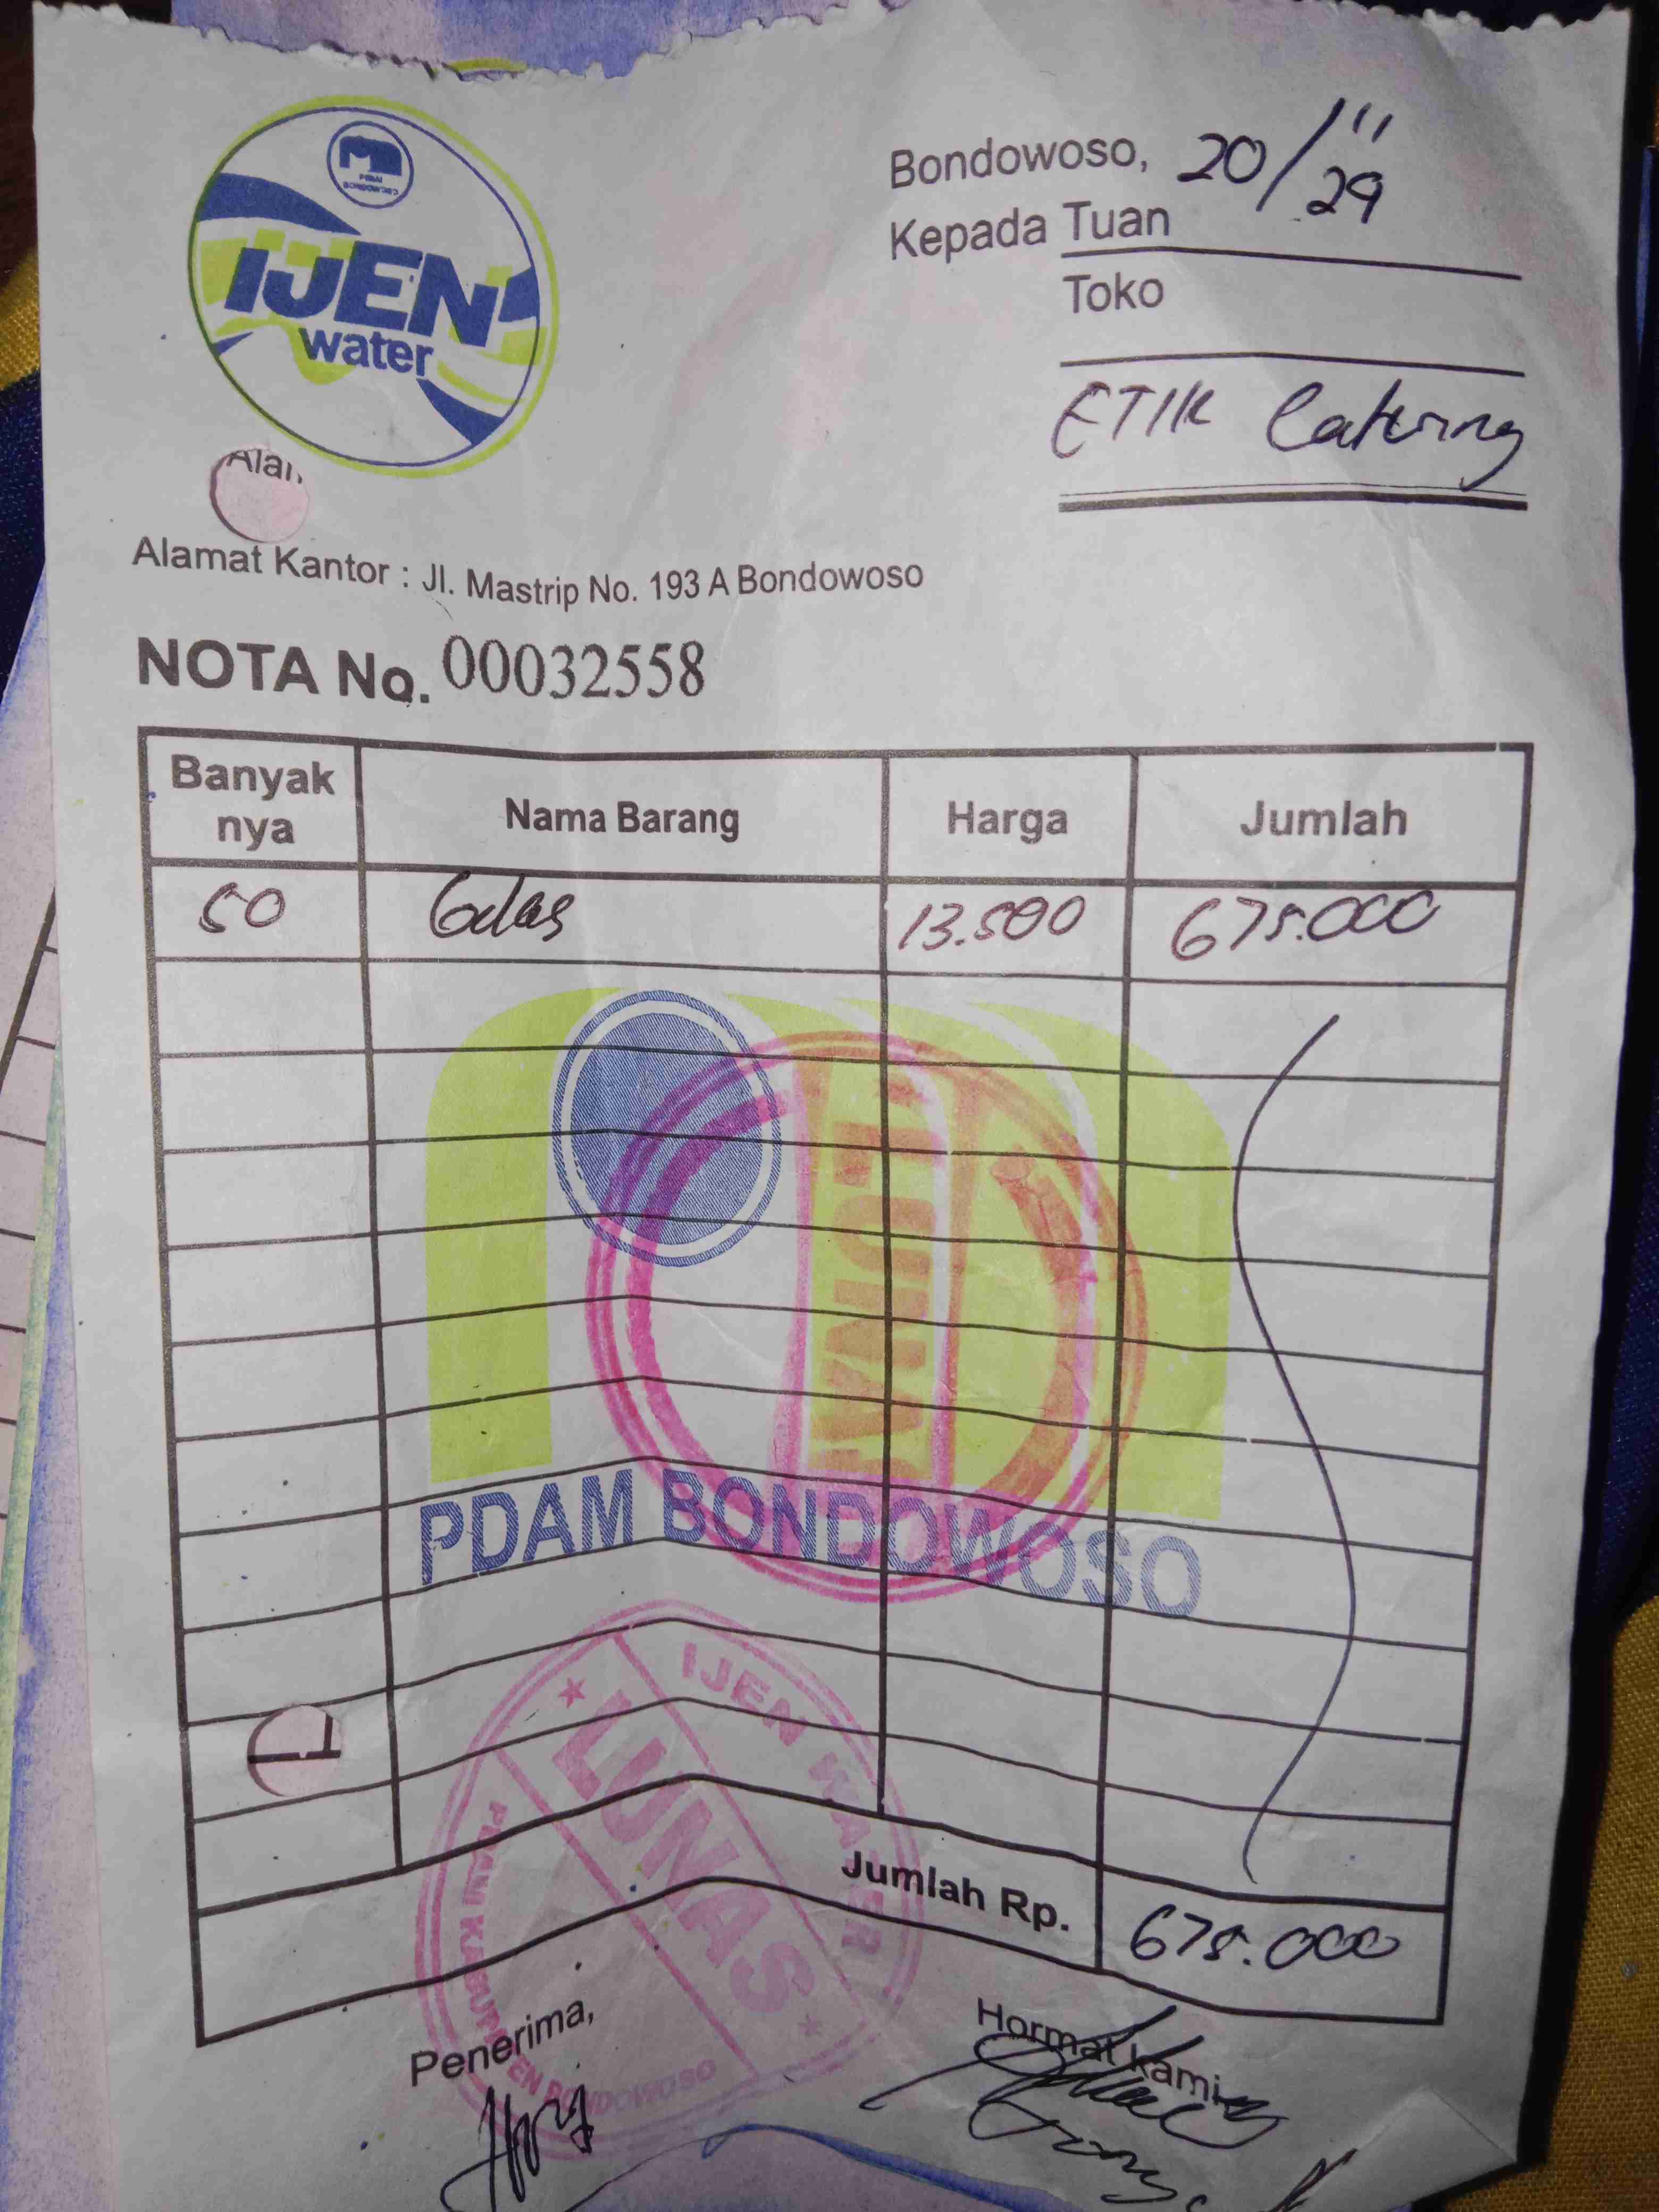 PDAM
BONDOWOSO
IJEN
water
Bondowoso, 20/11 29
Kepada Tuan
Toko
ETIK Catering
Alamat Kantor : Jl. Mastrip No. 193 A Bondowoso
NOTA No. 00032558
Banyak nya Nama Barang Harga Jumlah
50 Gelas 13.500 675.000
PDAM BONDOWOSO
IJEN WATER
LUNAS
PDAM KABUPATEN BONDOWOSO
Jumlah Rp. 675.000
Penerima, Hormat kami